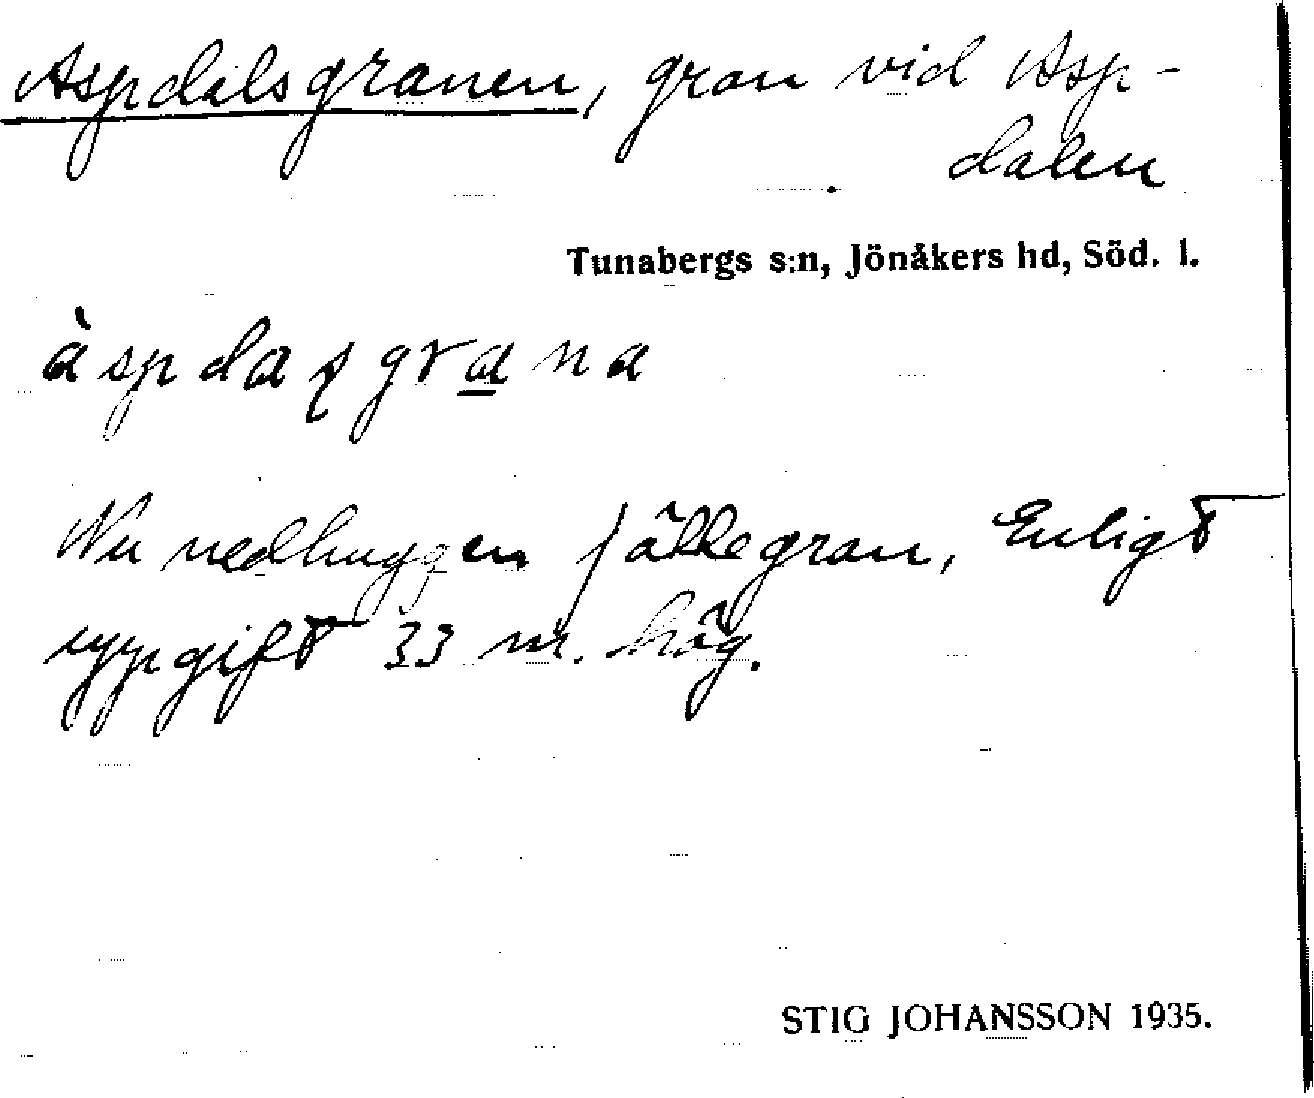 Aspdalsgranen, gran vid Asp-
dalen
Tunabergs s:n, Jönåkers hd, Söd. l.
àspdaʂgrana
Nu nedhuggen jättegran, Enligt
uppgift 33 m. hög.
STIG JOHANSSON 1935.